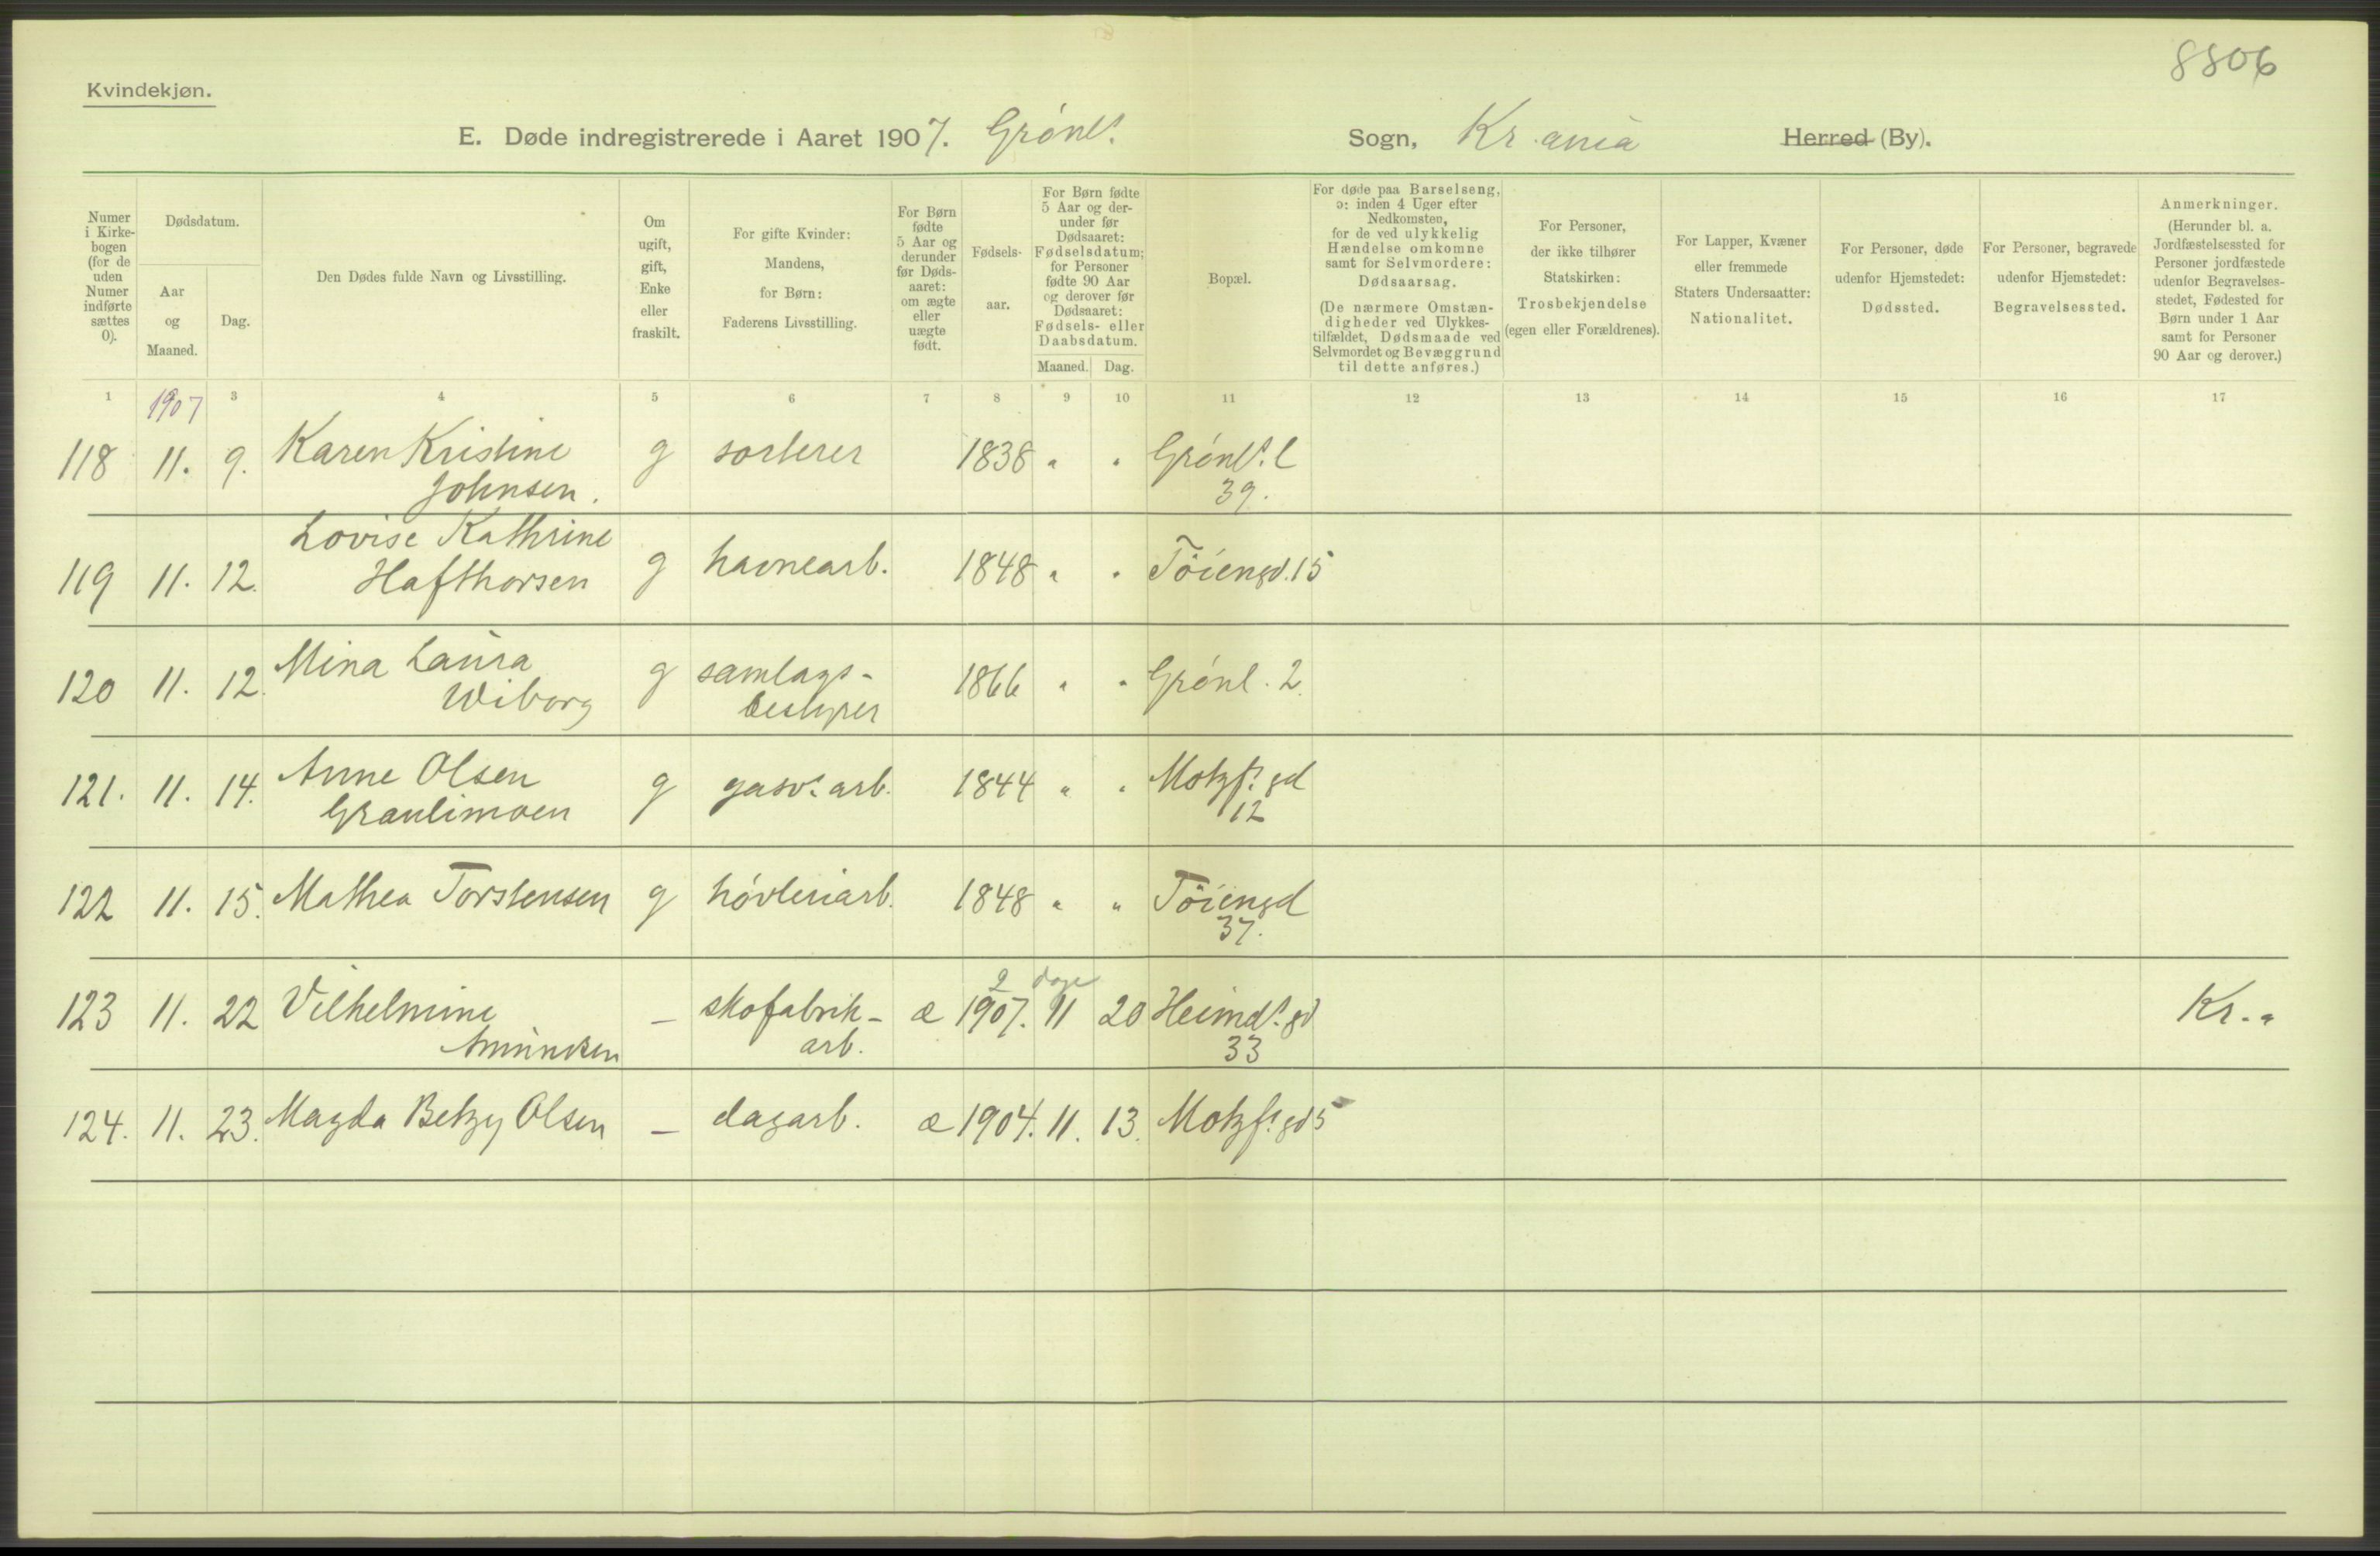 8806
Kvindekjøn.
E. Døde indregistrerede i Aaret 1907. Grønlˢ. Sogn, Kr.ania Herred (By).
Numer i Kirkebogen (for de uden Numer indførte sættes 0).
Dødsdatum.
Aar og Maaned.
Dag.
Den Dødes fulde Navn og Livsstilling.
Om ugift, gift, Enke eller fraskilt.
For gifte Kvinder: Mandens, for Børn: Faderens Livsstilling.
For Børn fødte 5 Aar og derunder før Dødsaaret: om ægte eller uægte født.
Fødselsaar.
For Børn fødte 5 Aar og derunder før Dødsaaret: Fødselsdatum; for Personer fødte 90 Aar og derover før Dødsaaret: Fødsels- eller Daabsdatum.
Maaned. Dag.
Bopæl.
For døde paa Barselseng, ɔ: inden 4 Uger efter Nedkomsten, for de ved ulykkelig Hændelse omkomne samt for Selvmordere: Dødsaarsag.
(De nærmere Omstændigheder ved Ulykkestilfældet, Dødsmaade ved Selvmordet og Bevæggrund til dette anføres.)
For Personer, der ikke tilhører Statskirken: Trosbekjendelse (egen eller Forældrenes).
For Lapper, Kvæner eller fremmede Staters Undersaatter: Nationalitet.
For Personer, døde udenfor Hjemstedet: Dødssted.
For Personer, begravede udenfor Hjemstedet: Begravelsessted.
Anmerkninger. (Herunder bl. a. Jordfæstelsessted for Personer jordfæstede udenfor Begravelsesstedet, Fødested for Børn under 1 Aar samt for Personer 90 Aar og derover.)
1 1907 3 4 5 6 7 8 9 10 11 12 13 14 15 16 17
118 11. 9. Karen Kristine g sorterer 1838 " " Grønlˢ. l
Johnsen. 39.
Lovise Kathrine
119 11. 12. Hafthorsen g havnearb. 1848 " " Töiengd. 15
120 11. 12. Mina Laura g samlags- 1866 " " Grønl. 2.
Wiborg bestyrer
121. 11. 14. Anne Olsen g gasvˢ. arb. 1844 " " Motzfˢ. gd
Graulimoen 12
122 11. 15. Mathea Torstensen g høvleriarb. 1848 " " Töiengd
37.
2 dage
123 11. 22 Vilhelmine — skofabrik- æ 1907. 11 20 Heimdˢ. gd Kr.a
Amundsen arb. 33
124. 11. 23. Magda Betzy Olsen — dagarb. æ 1904. 11. 13. Motzfˢ. gd 5